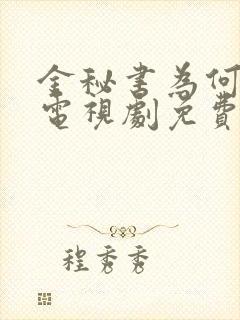 金秘書為何
電視劇免費
程秀秀